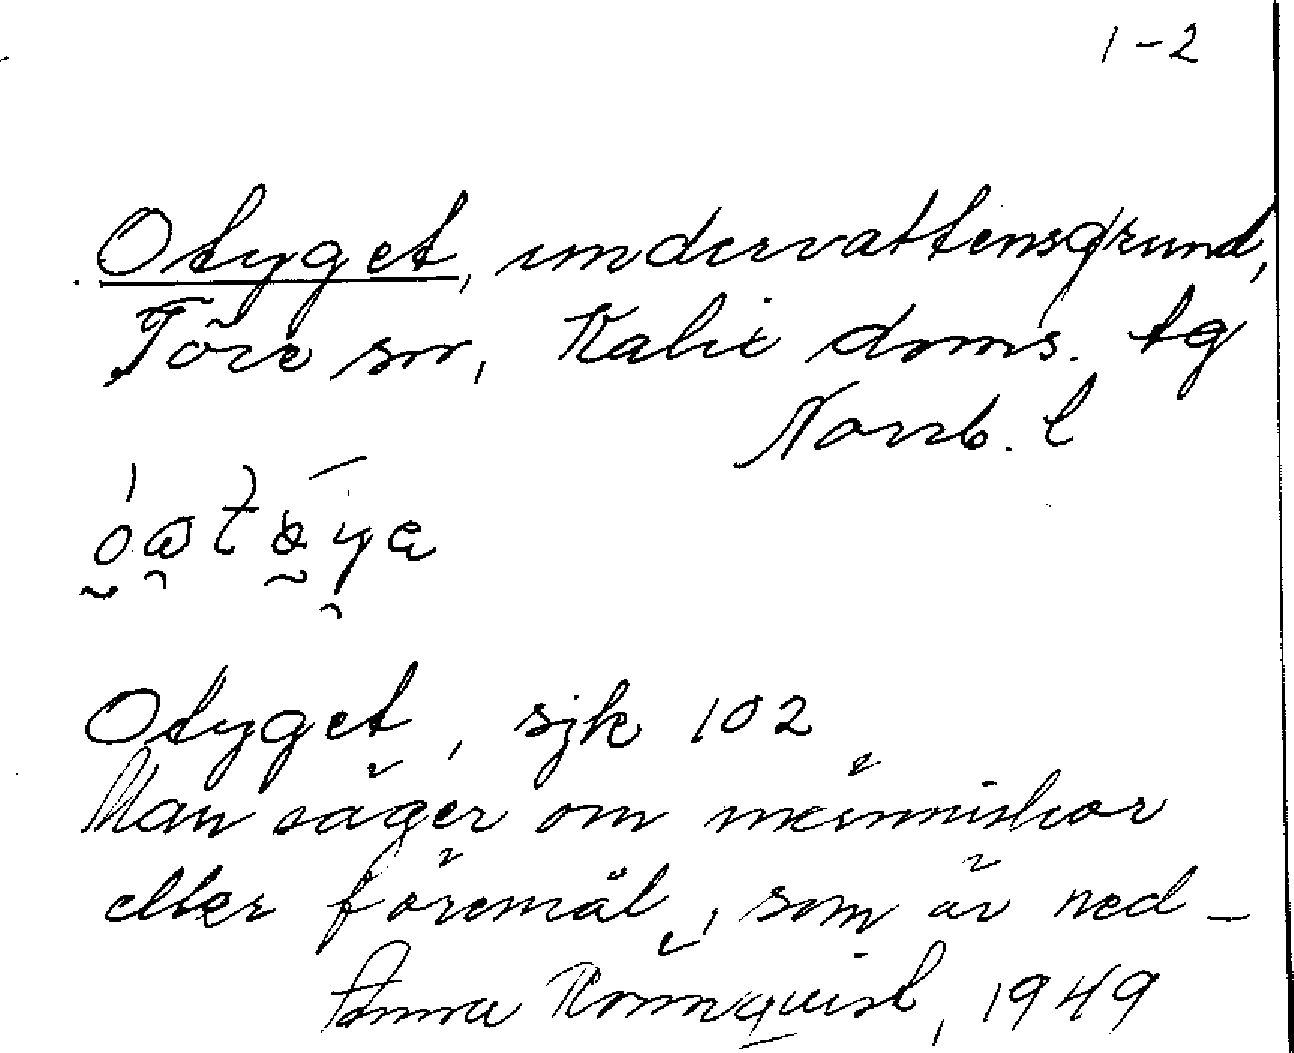 1-2
Otyget, undervattensgrund,
Töre sn, Kalix doms. tg
Norrb. l
Otyget, sjk 102
Man säger om människor
eller föremål, som är ned-
Anna Rönnquist, 1949